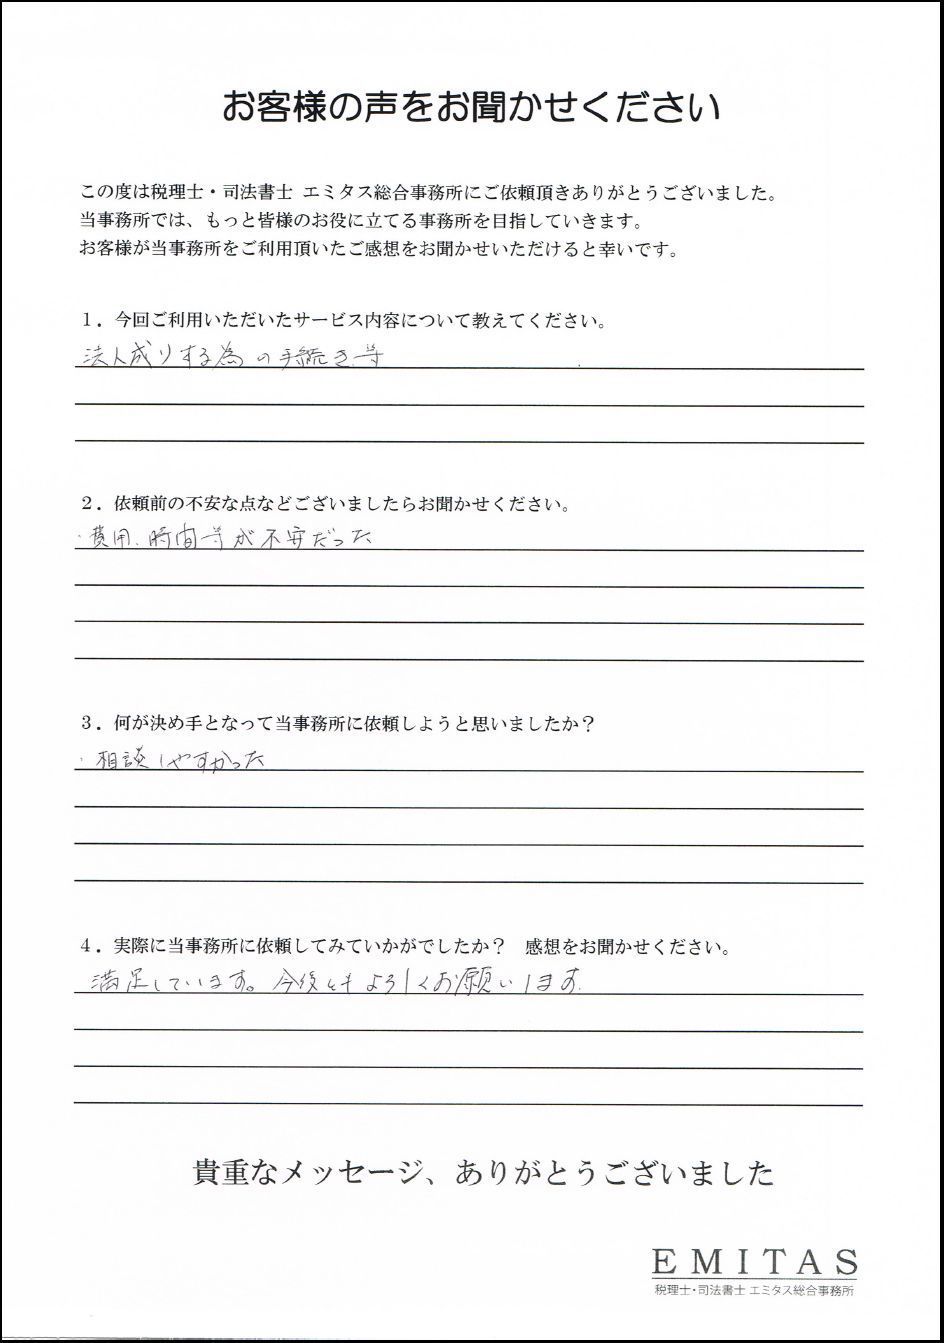 お客様の声をお聞かせください
この度は税理士・司法書士 エミタス総合事務所にご依頼頂きありがとうございました。
当事務所では、もっと皆様のお役に立てる事務所を目指していきます。
お客様が当事務所をご利用頂いたご感想をお聞かせいただけると幸いです。
１．今回ご利用いただいたサービス内容について教えてください。
法人成りする為の手続き等
２．依頼前の不安な点などございましたらお聞かせください。
・費用、時間等が不安だった
３．何が決め手となって当事務所に依頼しようと思いましたか？
・相談しやすかった
４．実際に当事務所に依頼してみていかがでしたか？ 感想をお聞かせください。
満足しています。今後ともよろしくお願いします.
貴重なメッセージ、ありがとうございました
EMITAS
税理士・司法書士 エミタス総合事務所